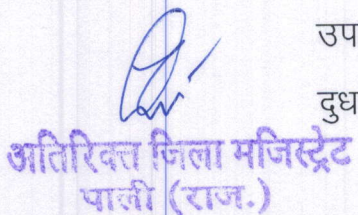 उप
दुध
अतिरिक्त जिला मजिस्ट्रेट
पाली (राज.)